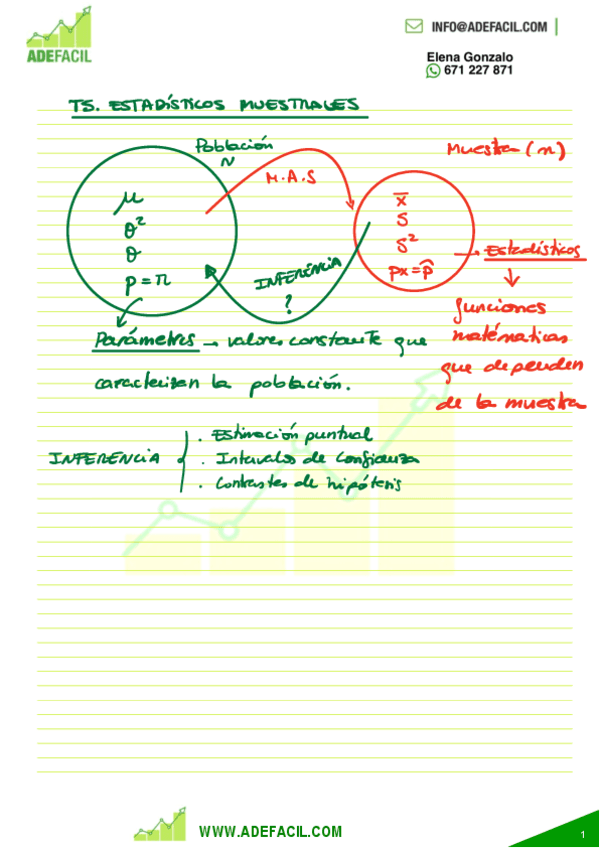 ADEFACIL
INFO@ADEFACIL.COM
Elena Gonzalo
671 227 871
T5. ESTADÍSTICOS MUESTRALES
Población
N
Muestra (n)
M.A.S
μ
σ²
σ
p = π
x̄
S
S²
px = p̂
INFERENCIA
?
→ Estadísticos
↓
funciones
matemáticas
que dependen
de la muestra
Parámetros → valores constante que
caracterizan la población.
INFERENCIA
. Estimación puntual
. Intervalos de confianza
. Contrastes de hipótesis
WWW.ADEFACIL.COM
1